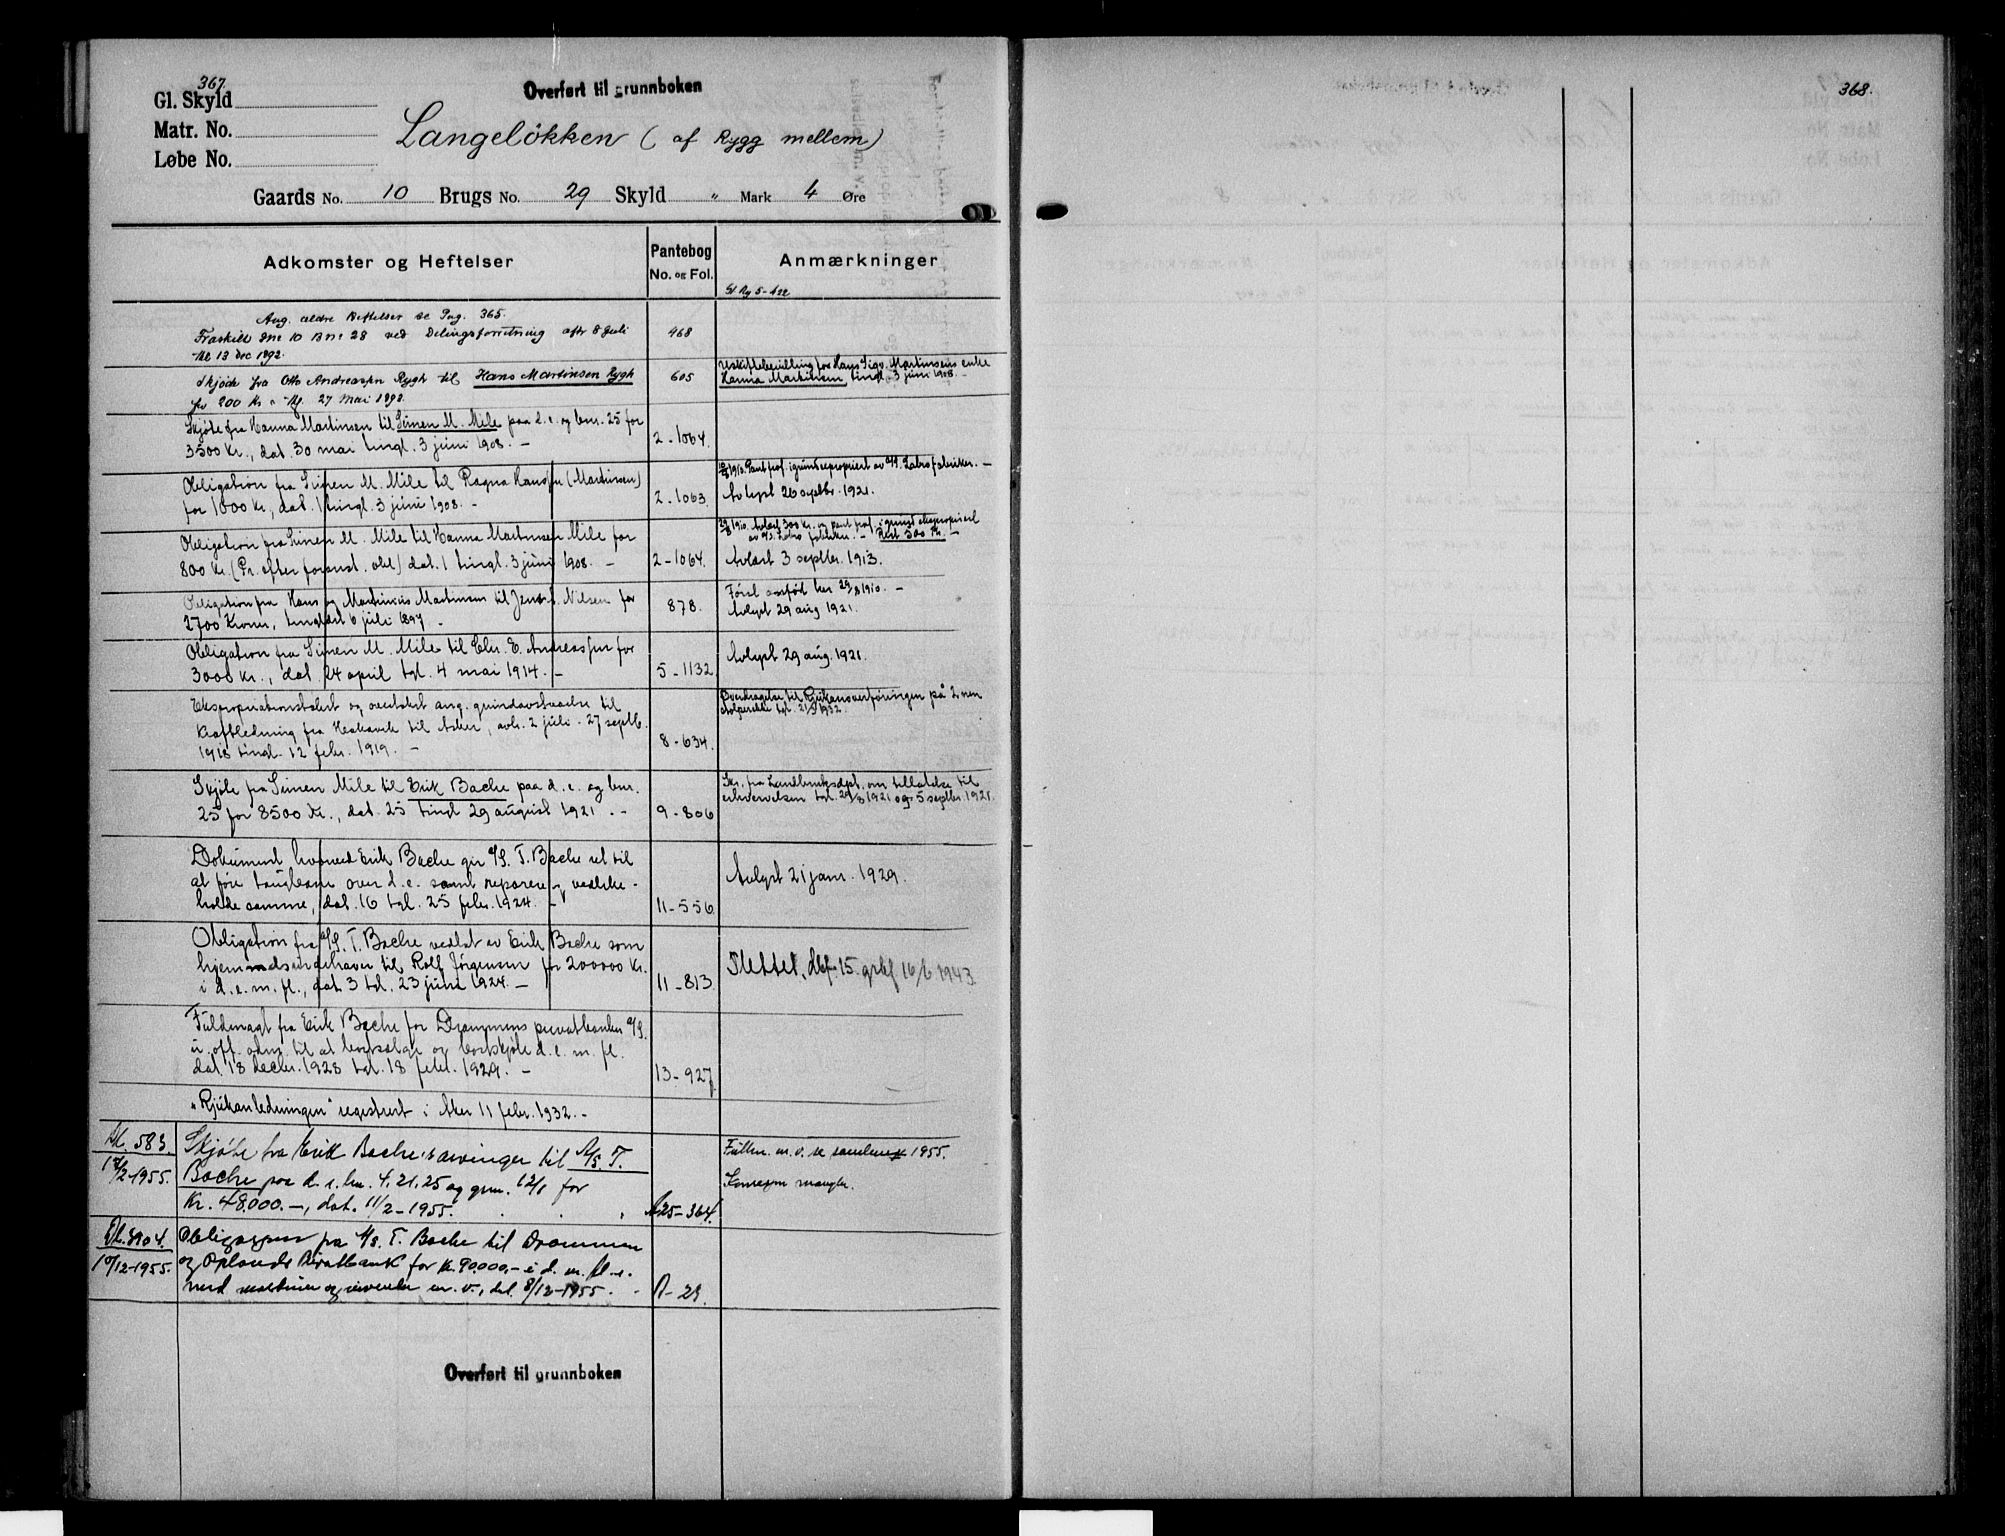 367.
Overført til grunnboken
Gl. Skyld
Matr. No.
Løbe No.
Langeløkken ( af Rygg mellem)
Gaards No. 10 Brugs No. 29 Skyld " Mark 4 Øre
Adkomster og Heftelser
Pantebog
No. og Fol.
Anmærkninger
Ang. ældre Heftelser se Pag. 365.
Fraskilt Gnr 10 Bnr 28 ved Delingsforretning afh 8 Juli
tgl. 13 Dec 1892.
468
Skjøde fra Otto Andreassen Rygh til Hans Martinsen Rygh
for 200 Kr. tgl. 27 Mai 1898.
605
Uskiftebevilling for Hans Sigv. Martinsens enke
Hanna Martinsen, tingl. 3 juni 1908. –
Skjøte fra Hanna Martinsen til Simen M. Mile paa d. e. og bnr. 25 for
3500 Kr., dat. 30 mai tingl. 3 juni 1908. –
2-1064.
Obligation fra Simen M. Mile til Ragna Hanssen (Martinsen)
for 1000 Kr., dat. 1 tingl. 3 juni 1908. –
2-1063.
1910. Pant fraf. i grund expropriert av A/S. Labro fabriker. –
Avlyst 26 septbr. 1921.
Obligation fra Simen M. Mile til Hanna Martinsen Mile for
800 Kr. (Pr. efter foranst. obl.) dat. 1 tingl. 3 juni 1908. –
2-1064.
29/8 1910. Avløst 300 Kr. og pant fraf. i grund ekspropriert
av A/S. Labro fabriker. – Rest 500 Kr. –
Avløst 3 septbr. 1913.
Obligation fra Hans og Martinius Martinsen til Jens L. Nilsen for
2700 Kroner, tinglæst 6 juli 1897 –
878.
Først anført her 29/8 1910. –
Avlyst 29 aug 1921.
Obligation fra Simen M. Mile til Chr. E. Andreassen for
3000 Kr., dat. 24 april tgl. 4 mai 1914. –
5-1132
Avlyst 29 aug. 1921.
Ekspropriationstakst og overtakst ang. grundavstaaelse til
Kraftledning fra Hakavik til Asker, avh. 2 juli - 27 septb.
1918 tingl. 12 febr. 1919. –
8-634.
Overdragelse til Rjukanoverføringen på 2 nen
stolperekke tgl. 21/3 1932.
Skjøte fra Simen Mile til Erik Bache paa d. e. og bnr.
25 for 8500 Kr., dat. 25 tingl 29 august 1921. –
9-806
Skr. fra Landbruksdept. om tillatelse til
erhvervelsen tgl. 29/8 1921 og 5 septbr. 1921.
Dokument hvorved Erik Bache gir A/S. T. Bache ret til
at føre taugbane over d. e. samt reparere og vedlike-
holde samme, dat. 16 tgl. 25 febr. 1924. –
11-556
Avlyst 21 janr. 1929.
Obligation fra A/S. T. Bache vedtat av Erik Bache som
hjemmelsindehaver til Rolf Jørgensen for 200000 Kr.
i d. e. m. fl., dat. 3 tgl. 23 juni 1924. –
11-813
Slettet, dbf. 15. grbl 16/6 1943
Fuldmagt fra Erik Bache for Drammens privatbanken A/S.
u. off. adm. til at bortsælge og bortskjøte d. e. m. fl.
dat. 18 decbr. 1928 tgl. 18 febr. 1929. –
13-927
"Rjukanledningen" registrert i Aker 11 febr. 1932. –
Dbl. 583.
17/2-1955.
Skjøte fra Erik Bache's arvinger til A/S. T.
Bache paa d. e. bn. 4, 21, 25 og gnr. 12/1 for
Kr. 48.000.–, dat. 11/2-1955.
A25-364.
Fullm. m. v. se 1955.
Konsesjon mangler.
Dbl. 3904.
10/12-1955.
Obligasjon fra A/S. T. Bache til Drammen
og Oplands Privatbank for Kr. 90.000,- i d. m. fl. e.
med maskiner og inventar m. v., dat. 8/12-1955. –
A-29.
Overført til grunnboken
368.